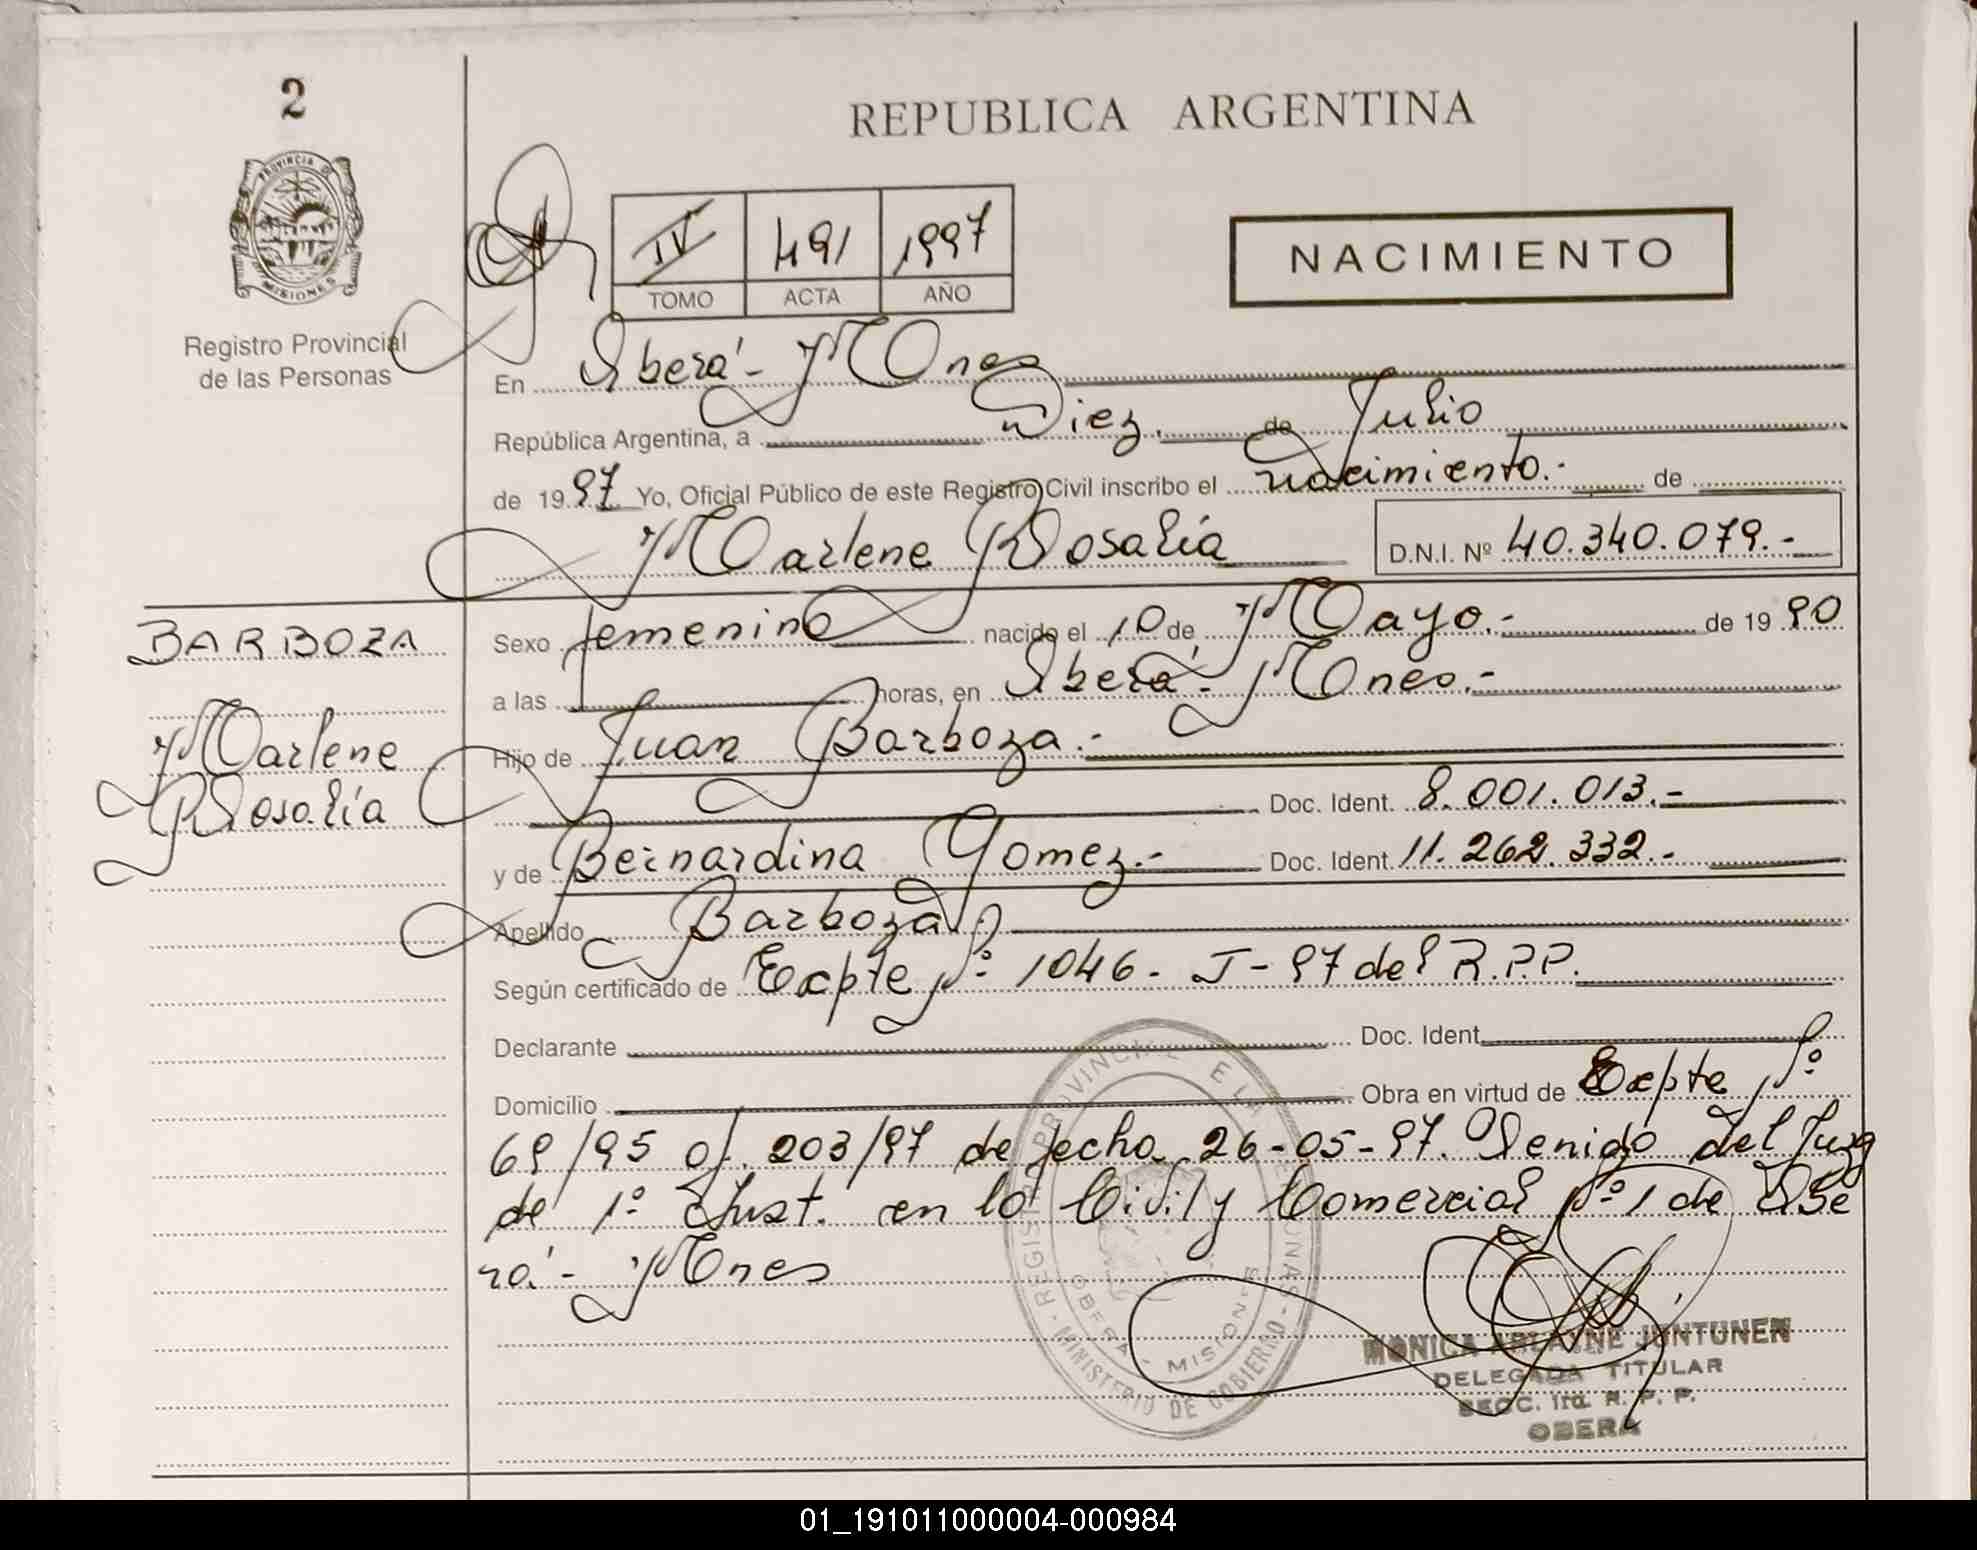 2
REPUBLICA ARGENTINA
PROVINCIA D
MISIONES
Registro Provincial
de las Personas
IV 491 1997
TOMO ACTA AÑO
NACIMIENTO
En Oberá - Mnes
República Argentina, a Diez de Julio
de 1997 Yo, Oficial Público de este Registro Civil inscribo el nacimiento.- de
Marlene Rosalía D.N.I. Nº 40.340.079.-
BARBOZA
Marlene
Rosalía
Sexo femenino nacido el 10 de Mayo.- de 1990
a las horas, en Oberá - Mnes.-
Hijo de Juan Barboza.-
Doc. Ident. 8.001.013.-
y de Bernardina Gomez.- Doc. Ident. 11.262.332.-
Apellido Barboza
Según certificado de Expte Nº 1046 - J - 97 del R.P.P.
Declarante Doc. Ident.
Domicilio Obra en virtud de Expte Nº
69/95 of. 203/97 de fecha 26-05-97. Venido del Juzg
de 1º Inst. en lo Civil y Comercial Nº 1 de Obe
rá - Mnes
REGISTRO PROVINCIAL DE LAS PERSONAS - MINISTERIO DE GOBIERNO -
OBERA - MISIONES
MONICA ARLAYNE JUNTUNEN
DELEGADA TITULAR
SECC. 1ra. R. P. P.
OBERA
01_191011000004-000984